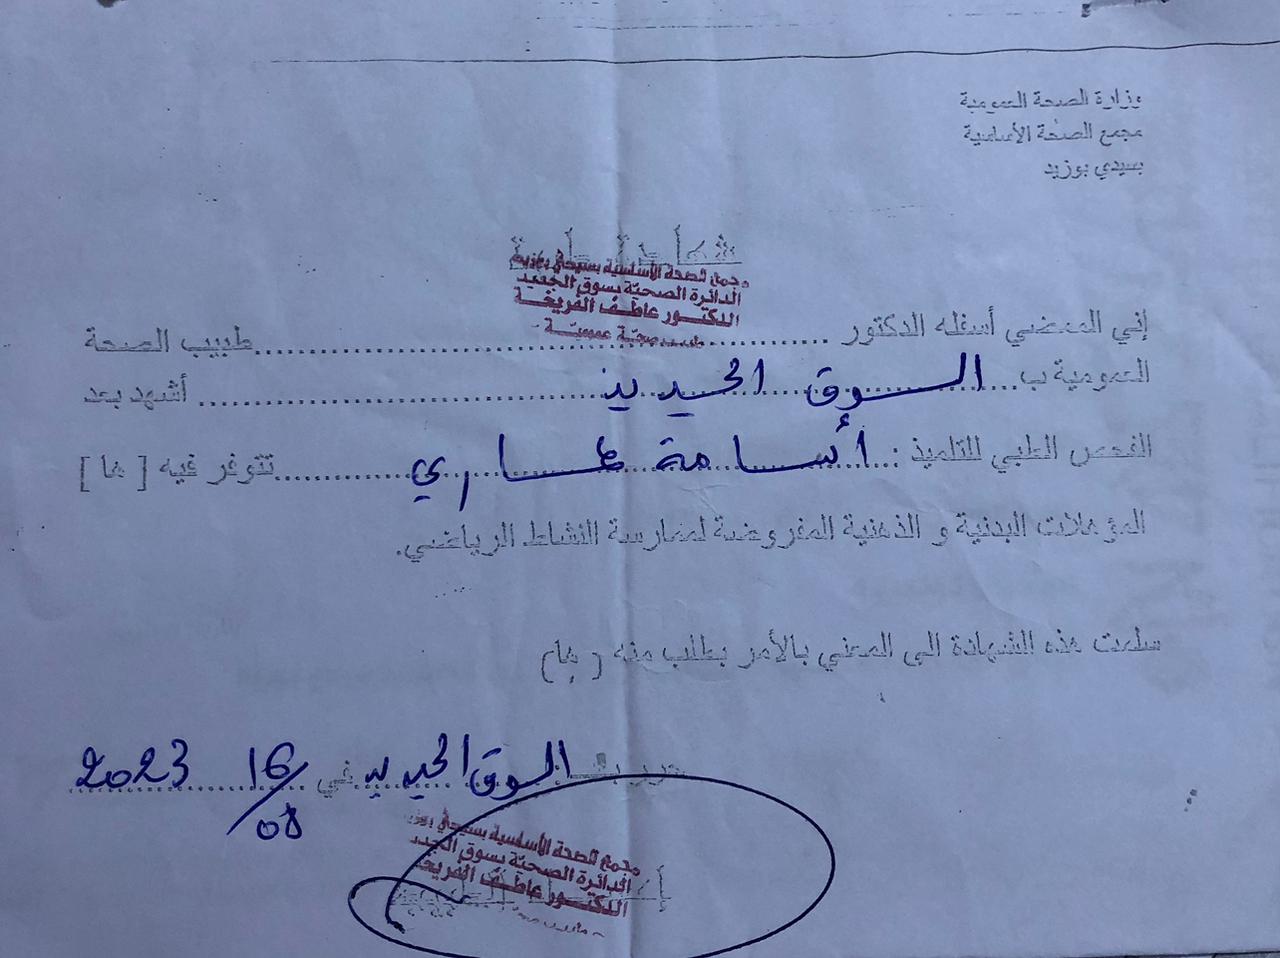 وزارة الصحة العمومية
مجمع الصحة الأساسية
بسيدي بوزيد
شهادة طبية
مجمع الصحة الأساسية بسيدي بوزيد
الدائرة الصحية بسوق الجديد
الدكتور عاطف الفريخة
طبيب صحة عمومية
إني الممضي أسفله الدكتور ........ طبيب الصحة
العمومية ب... السوق الجديد ........ أشهد بعد
الفحص الطبي للتلميذ : أسامة ........ تتوفر فيه [ ها ]
المؤهلات البدنية و الذهنية المفروضة لممارسة النشاط الرياضي.
سلمت هذه الشهادة الى المعني بالأمر بطلب منه ( ها)
حرر بـ السوق الجديد في 16/08 2023
مجمع الصحة الأساسية بسيدي بوزيد
الدائرة الصحية بسوق الجديد
الدكتور عاطف الفريخة